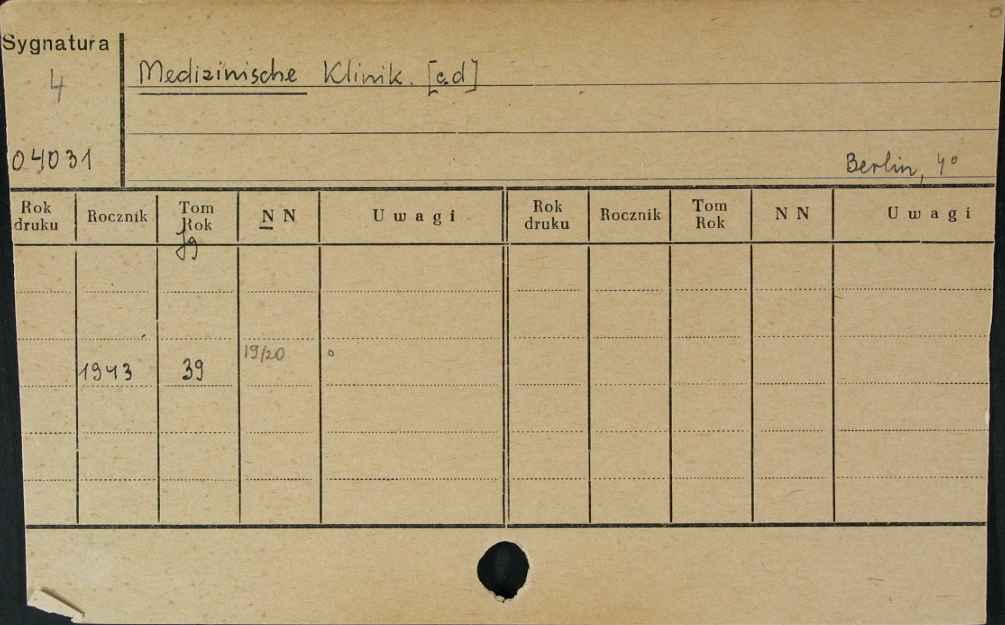 Sygnatura
4
Medizinische Klinik. [cd]
04031
Berlin, 4°
Rok druku Rocznik Tom Rok N N Uwagi Rok druku Rocznik Tom Rok N N Uwagi
Jg
19/20
1943 39